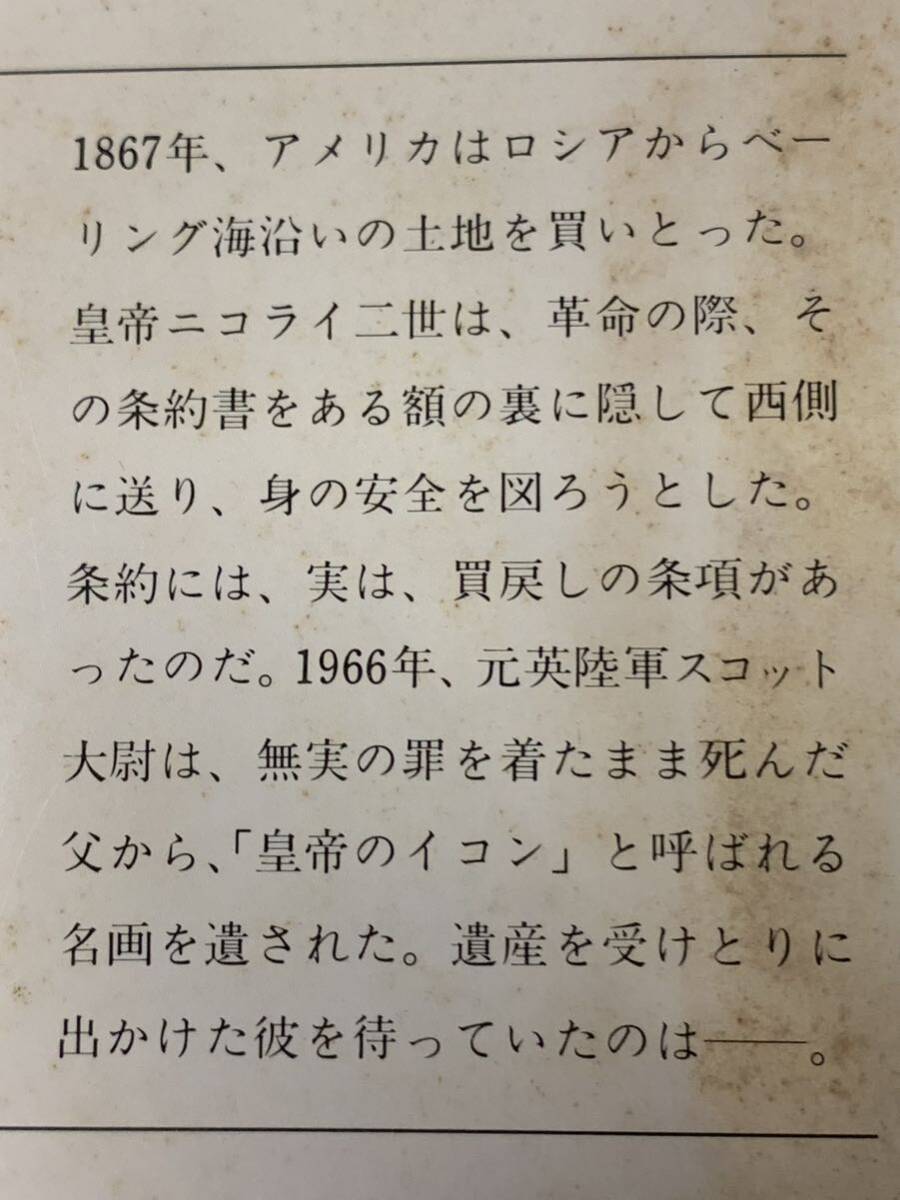 1867年、アメリカはロシアからベー
リング海沿いの土地を買いとった。
皇帝ニコライ二世は、革命の際、そ
の条約書をある額の裏に隠して西側
に送り、身の安全を図ろうとした。
条約には、実は、買戻しの条項があ
ったのだ。1966年、元英陸軍スコット
大尉は、無実の罪を着たまま死んだ
父から、「皇帝のイコン」と呼ばれる
名画を遺された。遺産を受けとりに
出かけた彼を待っていたのは――。